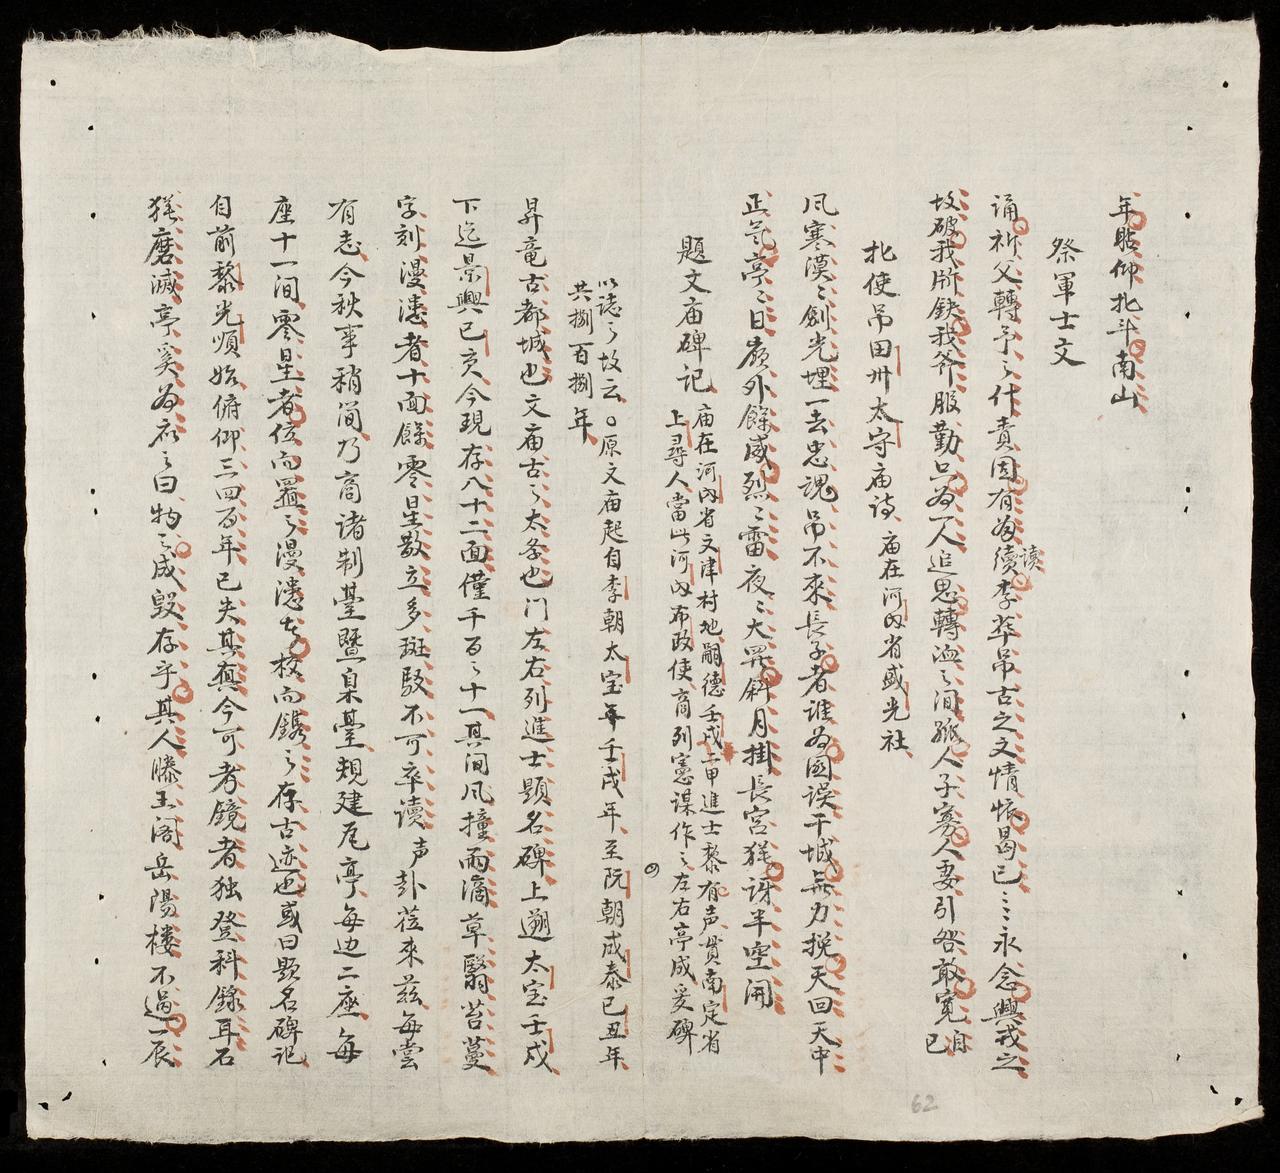 年瞻仰北斗南山
祭軍士文
誦祈父轉予之什責固有為續讀李華吊古之文情悵曷已〻〻永念興戎之
故破我斨缺我斧服勤只為一人追思轉洫之间孤人子寡人妻引咎敢寬自已
北使吊田卅太守庙詩 庙在河内省盛光社
风寒漠〻劍光埋一去忠魂吊不來長子者誰為國误干城無力挽天回天中
正氣亭〻日嶺外餘威烈〻雷夜〻大罘斜月掛長宮猶訝半空開
題文庙碑记 庙在河内省文津村地嗣德壬戌二甲進士黎有声貫南定省
上尋人當此河内布政使商列憲谋作之左右亭成爰碑
以誌之故云。原文庙起自李朝太宝年壬戌年至阮朝成泰已丑年
共捌百捌年
昇竜古都城也文庙古之太李也门左右列進士題名碑上遡太宝壬戌
下迄景興已亥今現存八十二面僅千百之十一其间风撞雨滴草翳苔蔓
字刻漫漶者十面餘零星散立多斑駁不可卒读声卦蒞來茲每嘗
有志今秋事稍简乃商诸制臺暨臬臺規建瓦亭每边二座每
座十一间零星者位而置之漫漶者校而鐫之存古迹也或曰題名碑记
自前黎光順始俯仰三四百年已失其真今可考鏡者独登科錄耳石
猶磨滅亭奚為應之曰物之成毀存乎其人滕王阁岳陽楼不過一辰
62